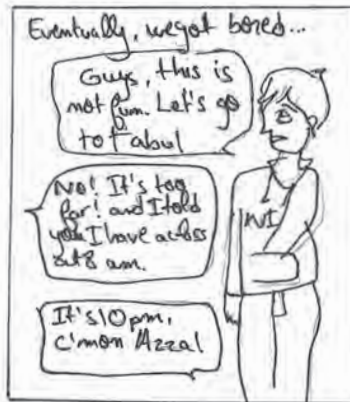 Eventually, we got bored...
Guys, this is
not fun. Let's go
to Fabul
No! It's too
far! and I told
you I have a class
at 8 am.
NI
It's 10 pm,
c'mon Azzal